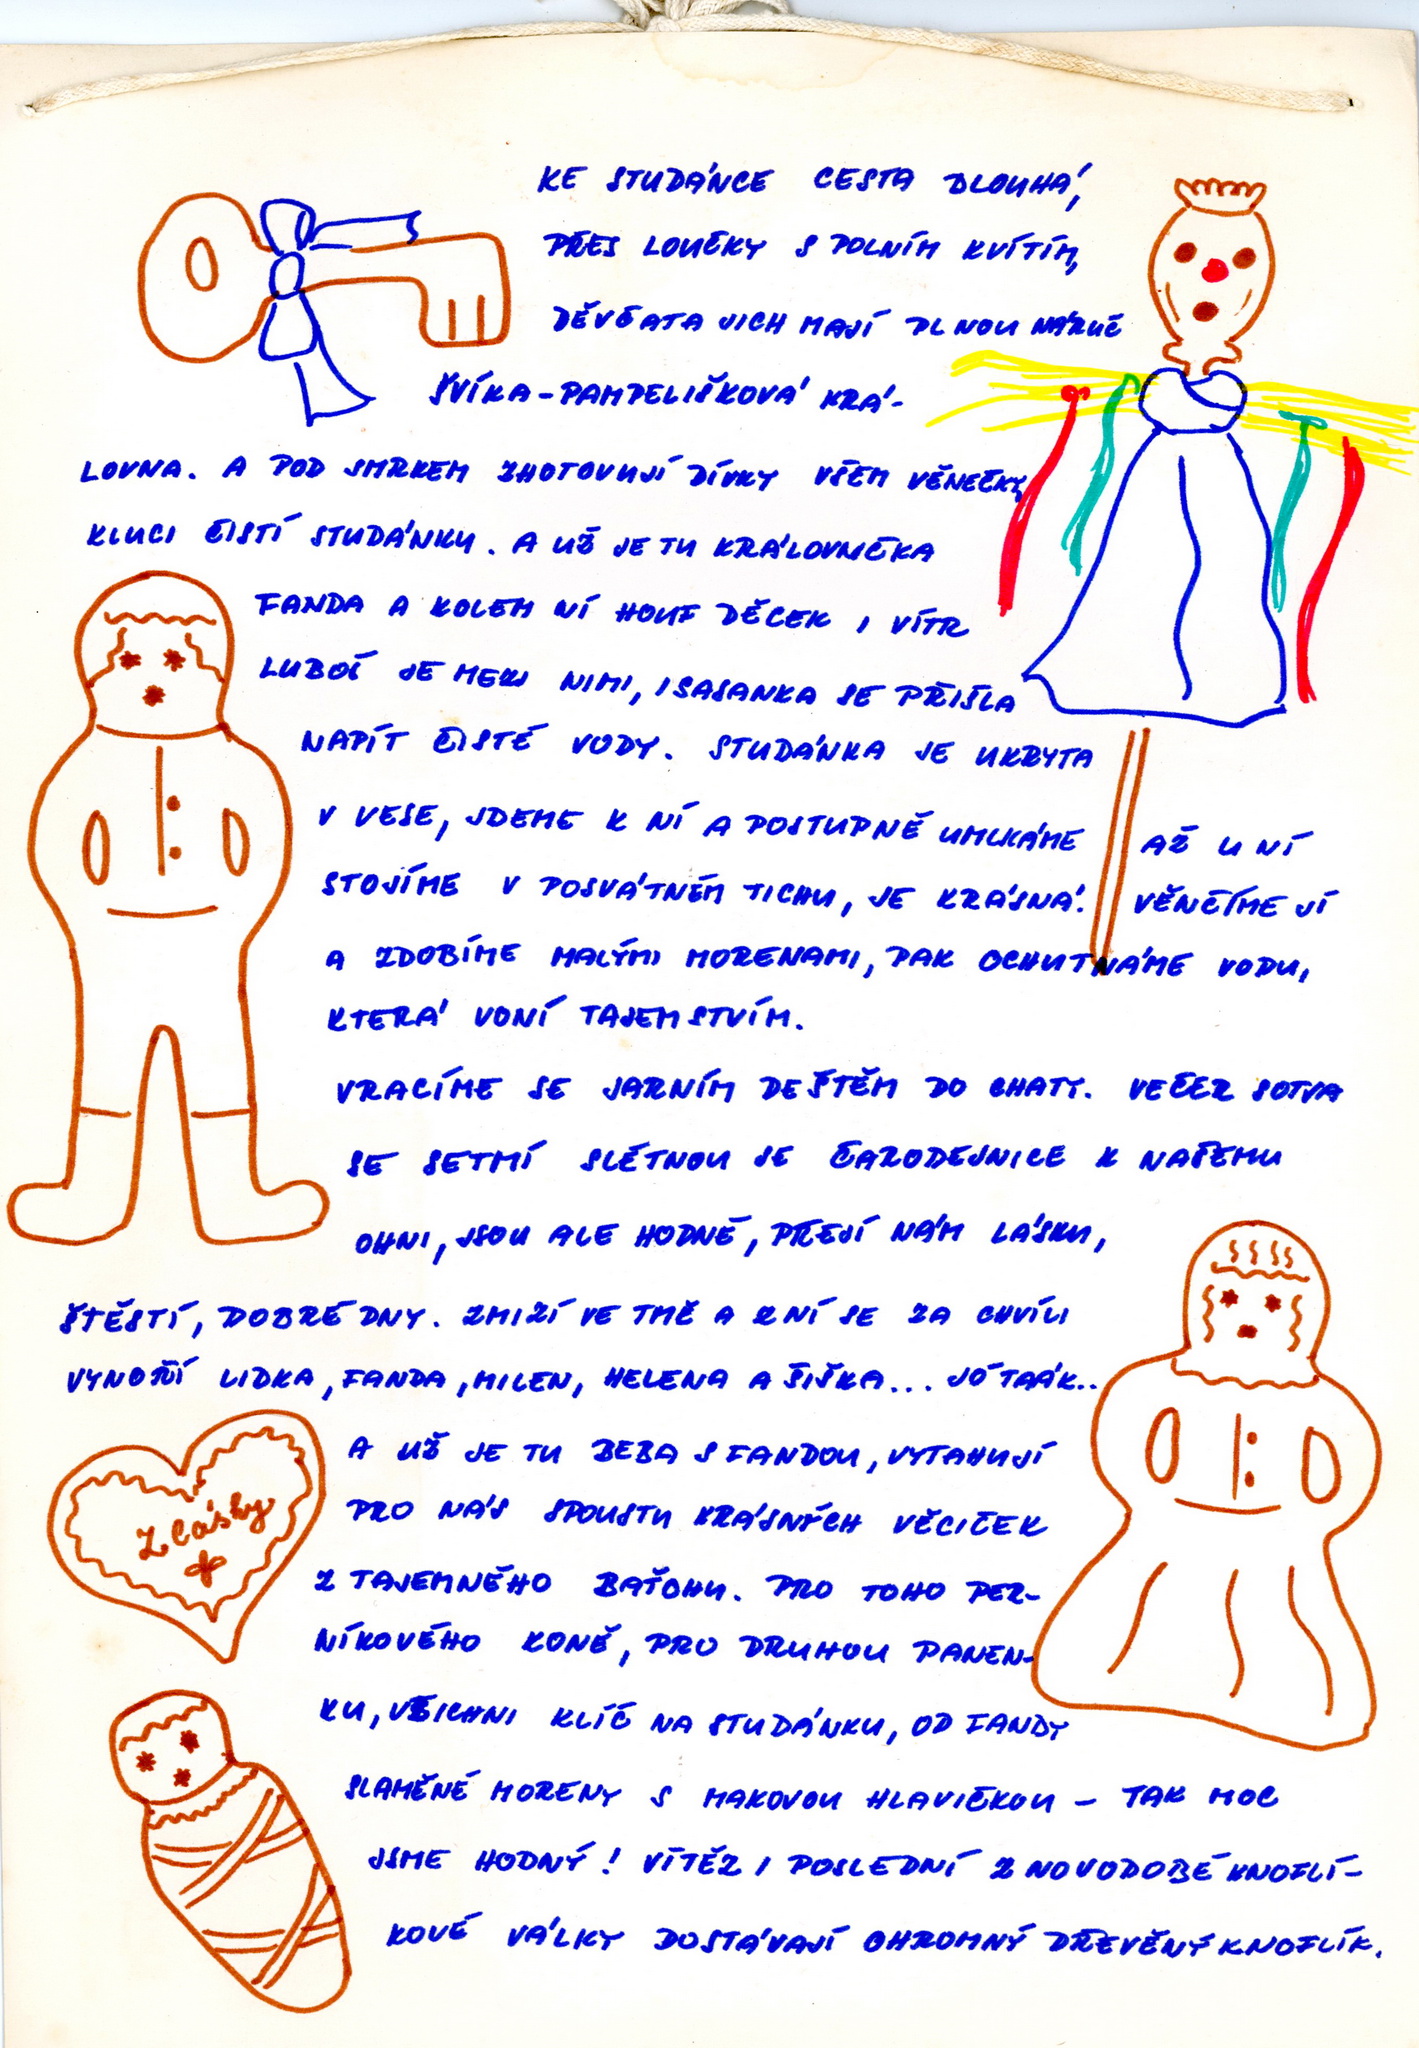 KE STUDÁNCE CESTA DLOUHÁ,
PŘES LOUČKY S POLNÍM KVÍTÍM,
DĚVČATA JICH MAJÍ PLNOU NÁRUČ
ŠVÍKA-PAMPELIŠKOVÁ KRÁ-
LOVNA. A POD SMRKEM ZHOTOVUJÍ DÍVKY VŠEM VĚNEČKY,
KLUCI ČISTÍ STUDÁNKU. A UŽ JE TU KRÁLOVNIČKA
FANDA A KOLEM NÍ HOUF DĚCEK I VÍTR
LUBOŠ JE MEZI NIMI, I SASANKA SE PŘIŠLA
NAPÍT ČISTÉ VODY. STUDÁNKA JE UKRYTA
V LESE, JDEME K NÍ A POSTUPNĚ UMLKÁME AŽ U NÍ
STOJÍME V POSVÁTNÉM TICHU, JE KRÁSNÁ! VĚNČÍME JÍ
A ZDOBÍME MALÝMI MORENAMI, PAK OCHUTNÁME VODU,
KTERÁ VONÍ TAJEMSTVÍM.
VRACÍME SE JARNÍM DEŠTĚM DO CHATY. VEČER SOTVA
SE SETMÍ SLÉTNOU SE ČARODEJNICE K NAŠEMU
OHNI, JSOU ALE HODNÉ, PŘEJÍ NÁM LÁSKU,
ŠTĚSTÍ, DOBRÉ DNY. ZMIZÍ VE TMĚ A Z NÍ SE ZA CHVÍLI
VYNOŘÍ LIDKA, FANDA, MILEN, HELENA A ŠIŠKA... JÓ TAÁK..
A UŽ JE TU BEBA S FANDOU, VYTAHUJÍ
PRO NÁS SPOUSTU KRÁSNÝCH VĚCIČEK
Z TAJEMNÉHO BAŤOHU. PRO TOHO PER-
NÍKOVÉHO KONĚ, PRO DRUHOU PANEN-
Z lásky
KU, VŠICHNI KLÍČ NA STUDÁNKU, OD FANDY
SLAMĚNÉ MORENY S MAKOVOU HLAVIČKOU - TAK MOC
JSME HODNÝ! VÍTĚZ I POSLEDNÍ Z NOVODOBÉ KNOFLÍ-
KOVÉ VÁLKY DOSTÁVAJÍ OHROMNÝ DŘEVĚNÝ KNOFLÍK.